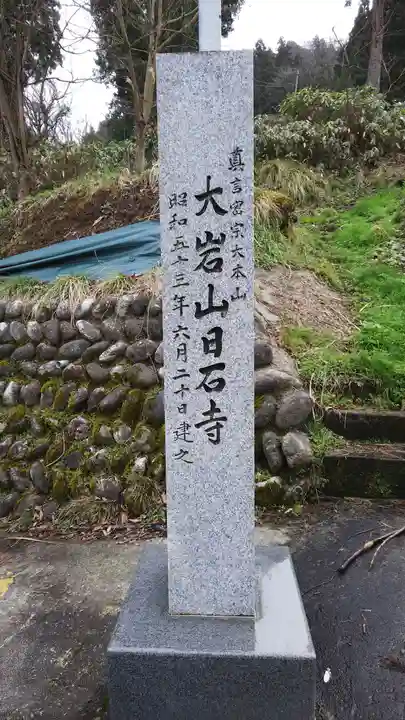 真言密宗大本山
大岩山日石寺
昭和五十三年六月二十日建之